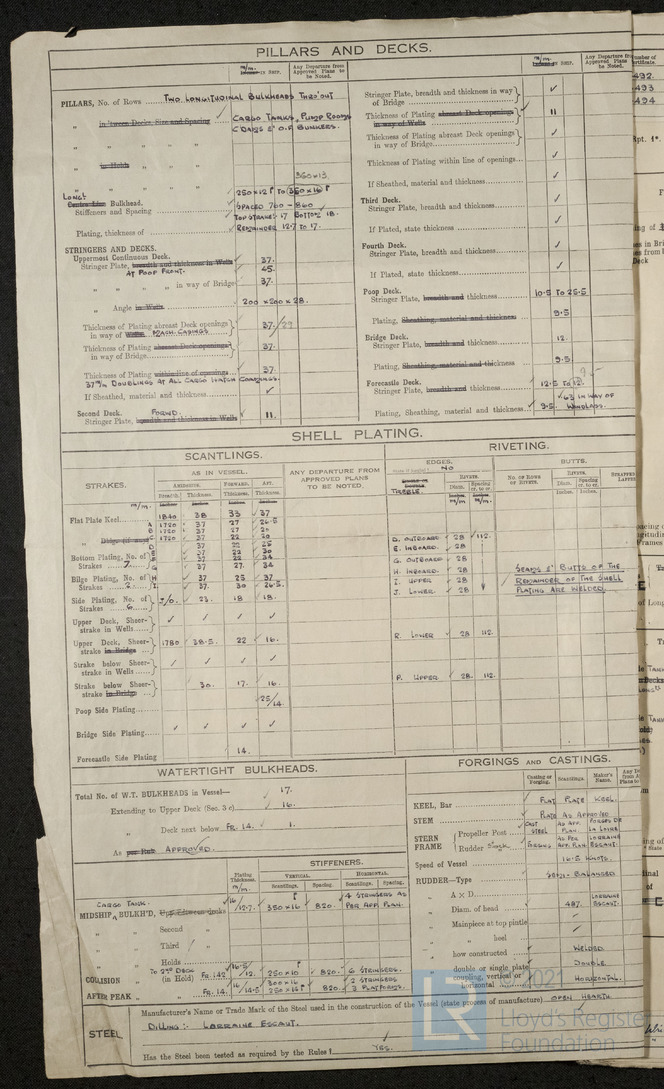 PILLARS AND DECKS.
m/m.
Inches IN SHIP.
Any Departure from Approved Plans to be Noted.
PILLARS, No. of Rows TWO LONGITUDINAL BULKHEADS THRO'OUT
" in 'tween Decks, Size and Spacing CARGO TANKS, PUMP ROOMS
C'DAMS & O.F. BUNKERS.
" " " "
" in Holds " "
350×13.
" " " " 250×12 P TO 350×16 P
LONGL Centre Line Bulkhead.
Stiffeners and Spacing SPACED 760 - 860
TOP STRAKE 17 BOTTOM 18.
Plating, thickness of REMAINDER 12.7 TO 17.
STRINGERS AND DECKS.
Uppermost Continuous Deck.
Stringer Plate, breadth and thickness in Wells 37.
AT POOP FRONT. 45.
" " in way of Bridge 37.
" Angle in Wells 200×200×28.
Thickness of Plating abreast Deck openings in way of Wells MACH. CASINGS 37./29
Thickness of Plating abreast Deck openings in way of Bridge 37.
Thickness of Plating within line of openings 37.
37 m/m DOUBLINGS AT ALL CARGO HATCH COAMINGS.
If Sheathed, material and thickness ✓
Second Deck. FORWD.
Stringer Plate, breadth and thickness in Wells 11.
m/m.
Inches IN SHIP.
Any Departure from Approved Plans to be Noted.
Stringer Plate, breadth and thickness in way of Bridge ✓
Thickness of Plating abreast Deck openings in way of Wells 11
Thickness of Plating abreast Deck openings in way of Bridge ✓
Thickness of Plating within line of openings ✓
If Sheathed, material and thickness ✓
Third Deck.
Stringer Plate, breadth and thickness ✓
If Plated, state thickness ✓
Fourth Deck.
Stringer Plate, breadth and thickness ✓
If Plated, state thickness ✓
Poop Deck.
Stringer Plate, breadth and thickness 10.5 TO 25.5
Plating, Sheathing, material and thickness 9.5
Bridge Deck.
Stringer Plate, breadth and thickness 12.
Plating, Sheathing, material and thickness 9.5
Forecastle Deck.
Stringer Plate, breadth and thickness 12.5 TO 12.
Plating, Sheathing, material and thickness 9.5 IN WAY OF WINDLASS.
492
493
494
SHELL PLATING.
SCANTLINGS.
STRAKES.
AS IN VESSEL.
AMIDSHIPS. FORWARD. AFT.
Breadth. Thickness. Thickness. Thickness.
ANY DEPARTURE FROM APPROVED PLANS TO BE NOTED.
m/m.
Flat Plate Keel 1840 38 33 37
A 1720 37 27 26.5
B 1720 37 27 20
C 1720 37 22 20
D 37 22 25
Bottom Plating, No. of Strakes 7.
E 37 22 30
F 37 22 34
G 37 27 34
Bilge Plating, No. of Strakes 2.
H 37 25 37
I 37 30 26.5
Side Plating, No. of Strakes 6. 23. 18 18.
Upper Deck, Sheer-strake in Wells ✓ ✓ ✓ ✓
Upper Deck, Sheer-strake in Bridge 1780 38.5 22 16.
Strake below Sheer-strake in Wells ✓ ✓ ✓ ✓
Strake below Sheer-strake in Bridge 30. 17. 16.
Poop Side Plating 25/14
Bridge Side Plating ✓ ✓ ✓ ✓
Forecastle Side Plating 14.
RIVETING.
EDGES.
NO
RIVETS.
Diam. Spacing cr. to cr.
BUTTS.
No. of Rows of Rivets.
RIVETS.
Diam. Spacing cr. to cr.
TREBLE.
D. OUTBOARD 28 112.
E. INBOARD 28
G. OUTBOARD 28
H. INBOARD 28
I. UPPER 28
J. LOWER 28
SEAMS & BUTTS OF THE
REMAINDER OF THE SHELL
PLATING ARE WELDED.
R. LOWER 28 112.
P. UPPER 28. 112.
WATERTIGHT BULKHEADS.
Total No. of W.T. BULKHEADS in Vessel— 17.
Extending to Upper Deck (Sec. 3 c) 16.
" Deck next below FR. 14. 1.
As per Rule APPROVED.
STIFFENERS.
Plating Thickness. m/m.
VERTICAL. HORIZONTAL.
Scantlings. Spacing. Scantlings. Spacing.
CARGO TANK.
MIDSHIP BULKH'D, 16/12.7. 350×16 P 820. 4 STRINGERS AS PER APP. PLAN.
" Second "
" Third "
" Holds
COLLISION " TO 2ND DECK (in Hold) FR. 142 16.5/12. 250×10 P 820. 6 STRINGERS.
AFTER PEAK " " FR. 14. 16/14.5 300×16 250×16 P 820. 2 STRINGERS 3 PLATFORMS.
FORGINGS AND CASTINGS.
Casting or Forging. Scantlings. Maker's Name.
KEEL, Bar FLAT PLATE KEEL.
STEM PLATE AS APPROVED
STERN FRAME
Propeller Post CAST STEEL AS APP. PLAN FORGES DE LA LOIRE
Rudder Stock FORGING AS PER APP. PLAN LORRAINE ESCAUT
Speed of Vessel 16.5 KNOTS.
RUDDER—Type SEMI-BALANCED
" A × D
" Diam. of head 487. LORRAINE ESCAUT.
" Mainpiece at top pintle
" " heel
" how constructed WELDED
" double or single plate DOUBLE
" coupling, vertical or horizontal HORIZONTAL.
STEEL.
Manufacturer's Name or Trade Mark of the Steel used in the construction of the Vessel (state process of manufacture) OPEN HEARTH.
DILLING:- LORRAINE ESCAUT.
Has the Steel been tested as required by the Rules? YES.
LR
© 2021
Lloyd's Register
Foundation